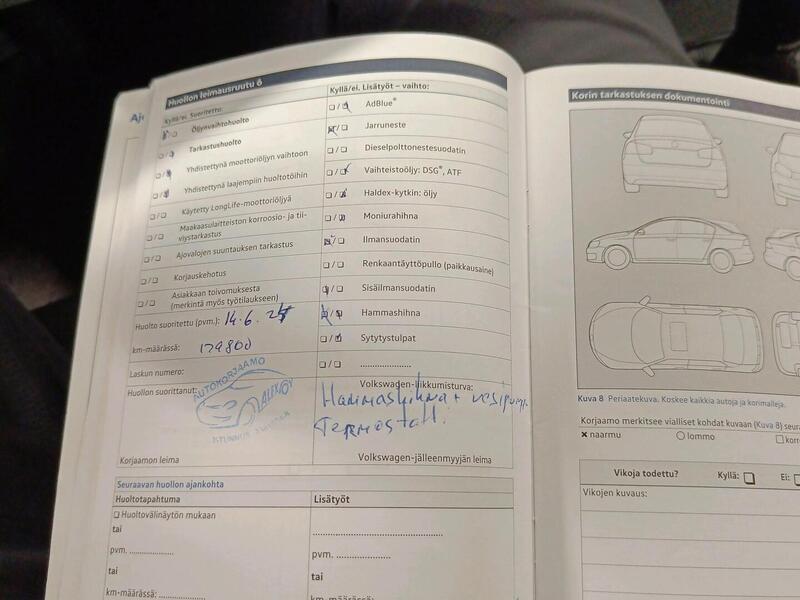 Huollon leimausruutu 6
Kyllä/ei Suoritettu:
Öljynvaihtohuolto
Tarkastushuolto
Yhdistettynä moottoriöljyn vaihtoon
Yhdistettynä laajempiin huoltotöihin
Käytetty LongLife-moottoriöljyä
Maakaasulaitteiston korroosio- ja tii-
viystarkastus
Ajovalojen suuntauksen tarkastus
Korjauskehotus
Asiakkaan toivomuksesta
(merkintä myös työtilaukseen)
Huolto suoritettu (pvm.): 14.6.24
km-määrässä: 179800
Laskun numero:
Huollon suorittanut:
AUTOKORJAAMO
ALEX OY
Korjaamon leima
Kyllä/ei. Lisätyöt – vaihto:
AdBlue®
Jarruneste
Dieselpolttonestesuodatin
Vaihteistoöljy: DSG®, ATF
Haldex-kytkin: öljy
Moniurahihna
Ilmansuodatin
Renkaantäyttöpullo (paikkausaine)
Sisäilmansuodatin
Hammashihna
Sytytystulpat
Volkswagen-liikkumisturva:
Hammashihna +
Termostatti
Volkswagen-jälleenmyyjän leima
Seuraavan huollon ajankohta
Huoltotapahtuma
Lisätyöt
Huoltovälinäytön mukaan
tai
pvm.
pvm.
tai
tai
km-määrässä:
km-määrässä:
Korin tarkastuksen dokumentointi
Kuva 8 Periaatekuva. Koskee kaikkia autoja ja korimalleja.
Korjaamo merkitsee vialliset kohdat kuvaan (Kuva 8)
naarmu
lommo
Vikoja todettu? Kyllä: Ei:
Vikojen kuvaus: